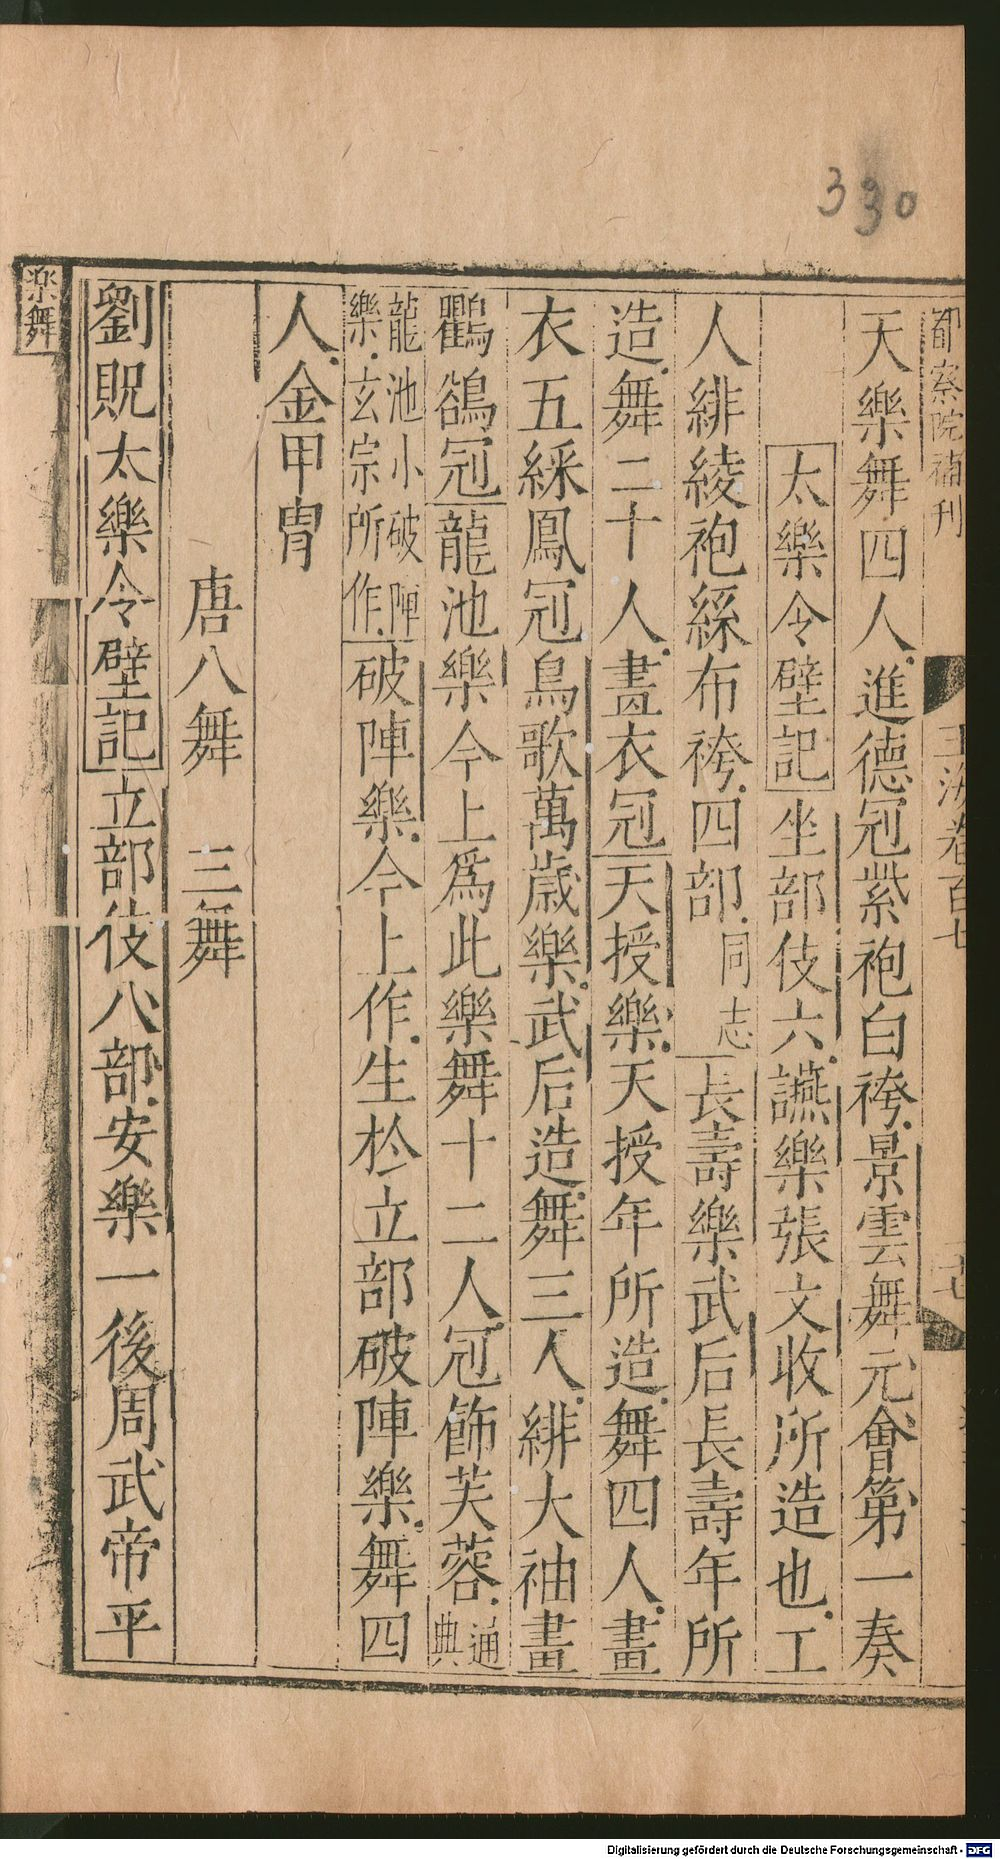 330
都察院補刊
玉海卷百七
天樂舞四人進德冠紫袍白袴景雲舞元會第一奏
太樂令壁記坐部伎六讌樂張文收所造也工
人緋綾袍絲布袴四部同志長壽樂武后長壽年所
造舞二十人畫衣冠天授樂天授年所造舞四人畫
衣五綵鳳冠鳥歌萬歲樂武后造舞三人緋大袖畫
鸜鵒冠龍池樂今上爲此樂舞十二人冠飾芙蓉通典
龍池小破陣樂玄宗所作破陣樂今上作生於立部破陣樂舞四
人金甲胄
唐八舞 三舞
劉貺太樂令壁記立部伎八部安樂一後周武帝平
樂舞
Digitalisierung gefördert durch die Deutsche Forschungsgemeinschaft - DFG